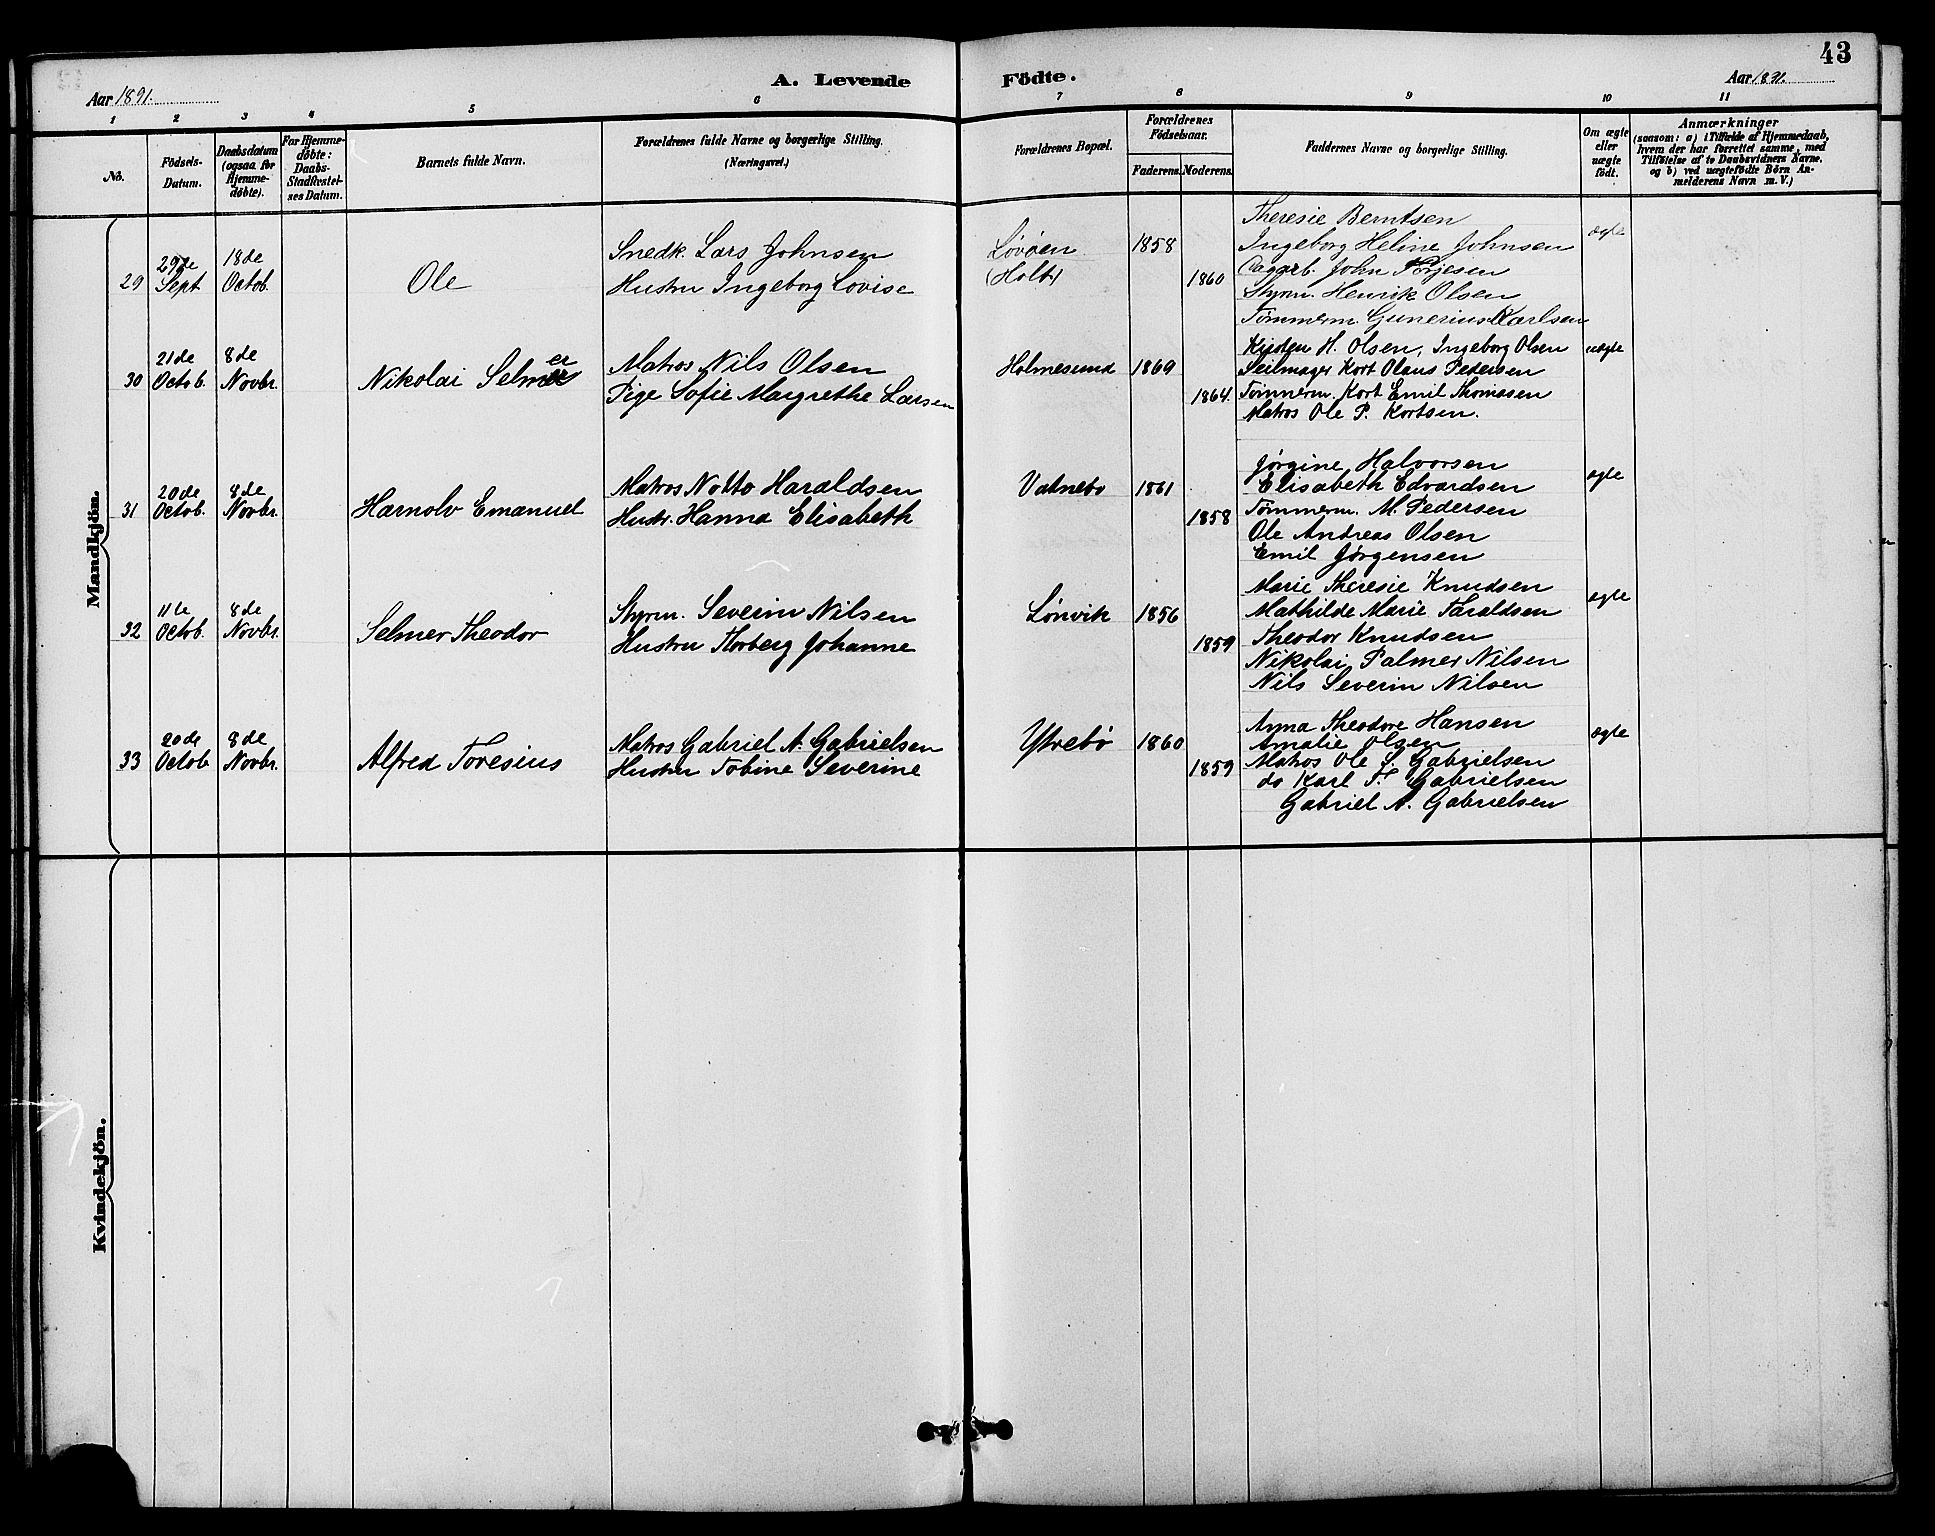 43
A. Levende Födte.
Aar 1891.
Aar 1891.
1 2 3 4 5 6 7 8 9 10 11
No.
Födsels-
Datum.
Daabsdatum
(ogsaa for
Hjemme-
döbte).
For Hjemme-
döbte:
Daabs-
Stadfæstel-
ses Datum.
Barnets fulde Navn.
Forældrenes fulde Navne og borgerlige Stilling.
(Næringsvei.)
Forældrenes Bopæl.
Forældrenes
Födselsaar.
Faderens. Moderens.
Faddernes Navne og borgerlige Stilling.
Om ægte
eller
uægte
födt.
Anmærkninger
(saasom: a) i Tilfælde af Hjemmedaab,
hvem der har forrettet samme, med
Tilföielse af to Daabsvidners Navne,
og b) ved uægtefödte Börn An-
melderens Navn m. V.)
Mandkjön.
29
29de
Sept.
18de
Octob.
Ole
Snedk. Lars Johnsen
Hustru Ingeborg Lovise
Løvøen
(Holt)
1858
1860
Theresie Berntsen
Ingeborg Heline Johnsen
Dagarb. John Terjesen
Styrm. Henrik Olsen
Tømmerm. Gunerius Karlsen
ægte
30
21de
Octob.
8de
Novbr.
Nikolai Selmer
Matros Nils Olsen
Pige Sofie Margrethe Larsen
Holmesund
1869
1864.
H. Olsen, Ingeborg Olsen
Seilmager Kort Olaus Pedersen
Tømmerm. Kort Emil Thomasen
Matros Ole P. Kortsen.
uægte
31
20de
Octob.
8de
Novbr.
Harnolv Emanuel
Matros Notto Haraldsen
Hustr. Hanna Elisabeth
Vatnebo
1861
1858
Jørgine Halvorsen
Elisabeth Edvardsen
Tømmerm. M. Pedersen
Ole Andreas Olsen
Emil Jørgensen
ægte
32
11te
Octob.
8de
Novbr.
Selmer Theodor
Styrm. Severin Nilsen
Hustru Thorberg Johanne
Lønvik
1856
1859
Marie Theresie Knudsen
Mathilde Marie Taraldsen
Theodor Knudsen
Nikolai Palmer Nilsen
Nils Severin Nilsen
ægte
33
20de
Octob.
8de
Novbr.
Alfred Toresius
Matros Gabriel A. Gabrielsen
Hustru Tobine Severine
Ytrebø
1860
1859
Anna Theodore Hansen
Amalie Olsen
Matros Ole S. Gabrielsen
do Karl T. Gabrielsen
Gabriel A. Gabrielsen
ægte
Kvindekjön.